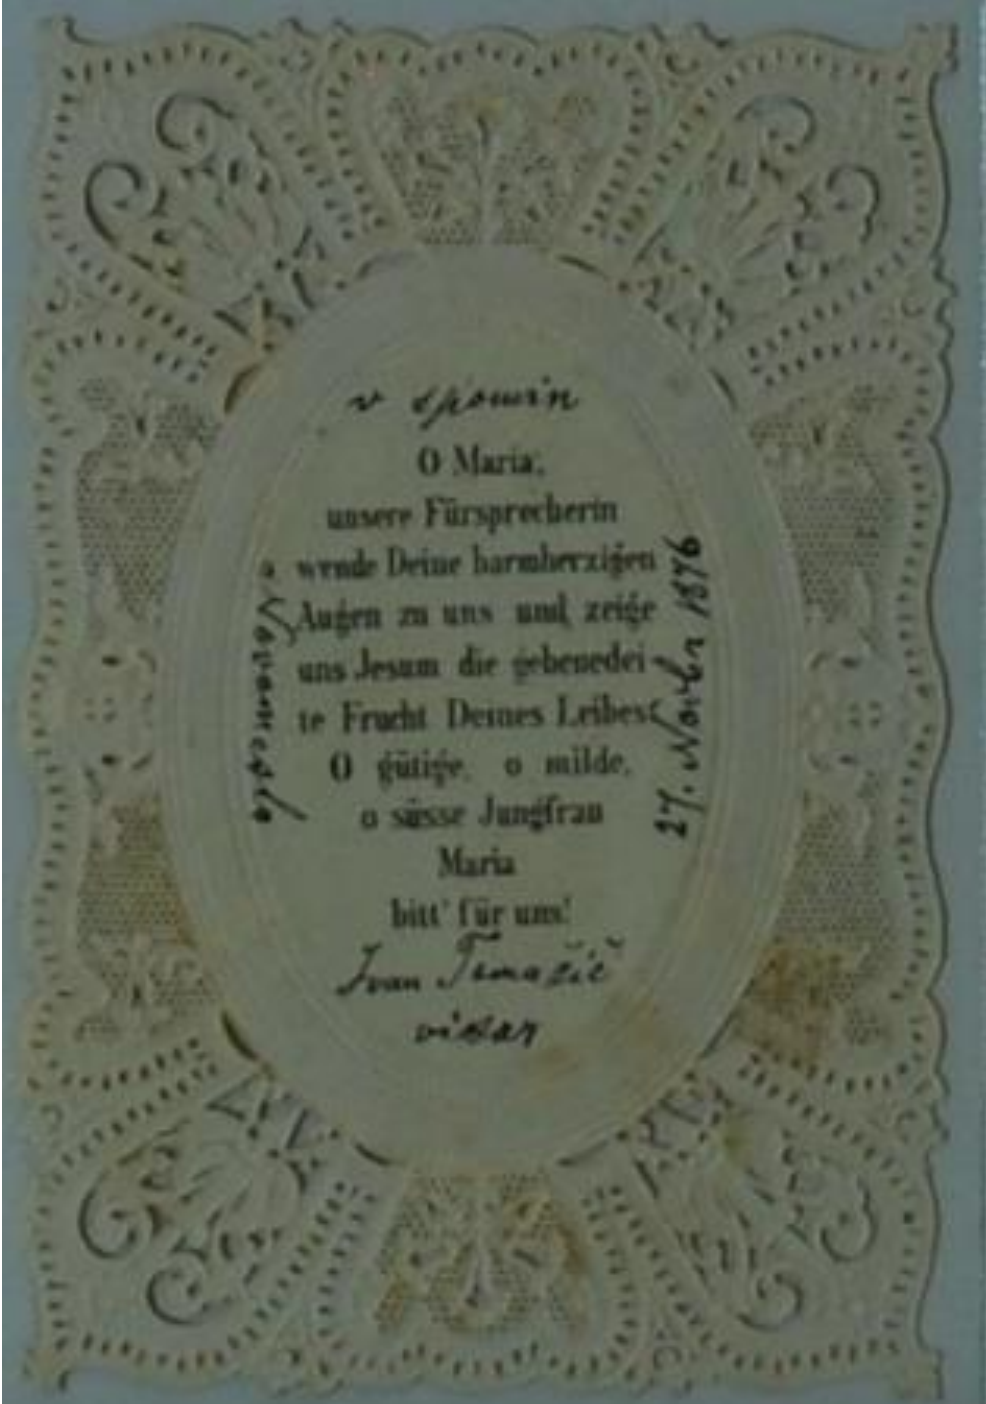 v spomin
O Maria,
unsere Fürsprecherin
wende Deine barmherzigen
Augen zu uns und zeige
uns Jesum die gebenedei
te Frucht Deines Leibes
O gütige, o milde,
o süsse Jungfrau
Maria
bitt' für uns!
Ivan Tomažič
vikar
27. Novbr 1876